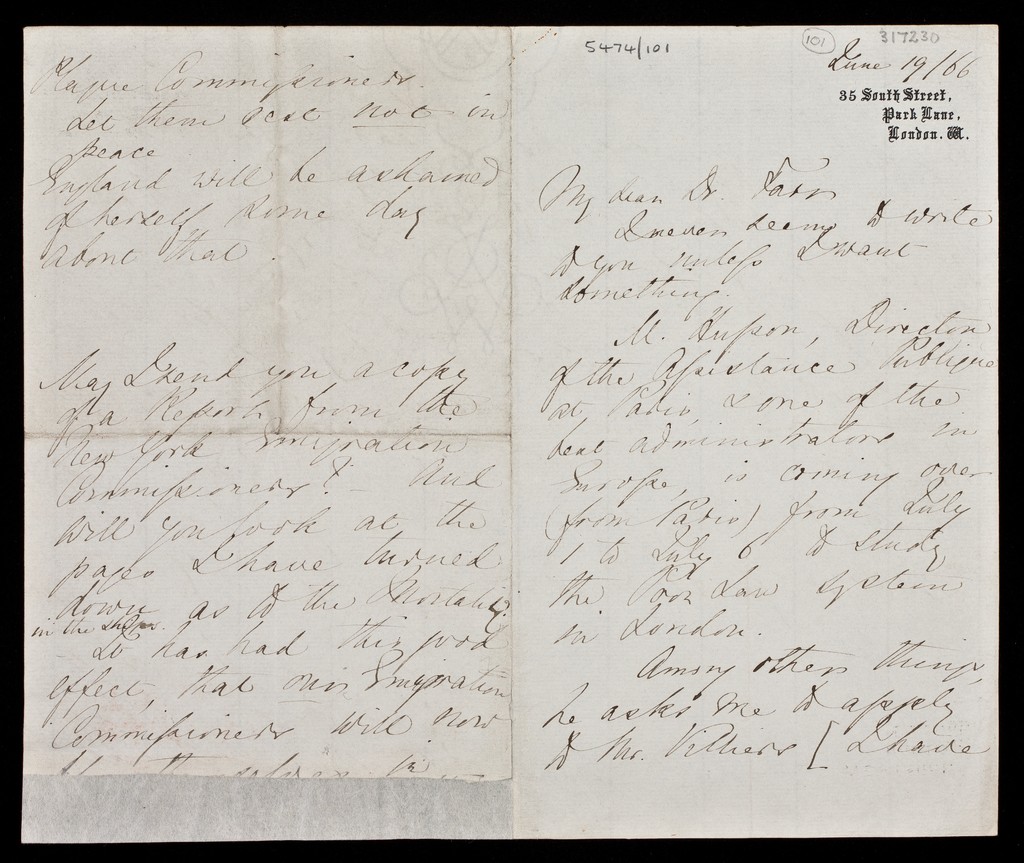 5474/101
101
317230
June 19/66
35 South Street,
Park Lane,
London. W.
My dear Dr. Farr
I never seem to write
to you unless I want
something.
M. Husson, Director
of the Assistance Publique
at Paris, & one of the
best administrators in
Europe, is coming over
(from Paris) from July
1 to July 6 to study
the Poor Law system
in London.
Among other things,
he asks me to apply
to Mr. Villiers [I have
Plague Commissioners.
Let them rest not in
peace
England will be ashamed
of herself some day
about that.
May I send you a copy
of a Report from the
New York Emigration
Commissioners? - And
will you look at the
pages I have turned
down as to the Mortality
in the ships.
It has had this good
effect, that our Emigration
Commissioners will now